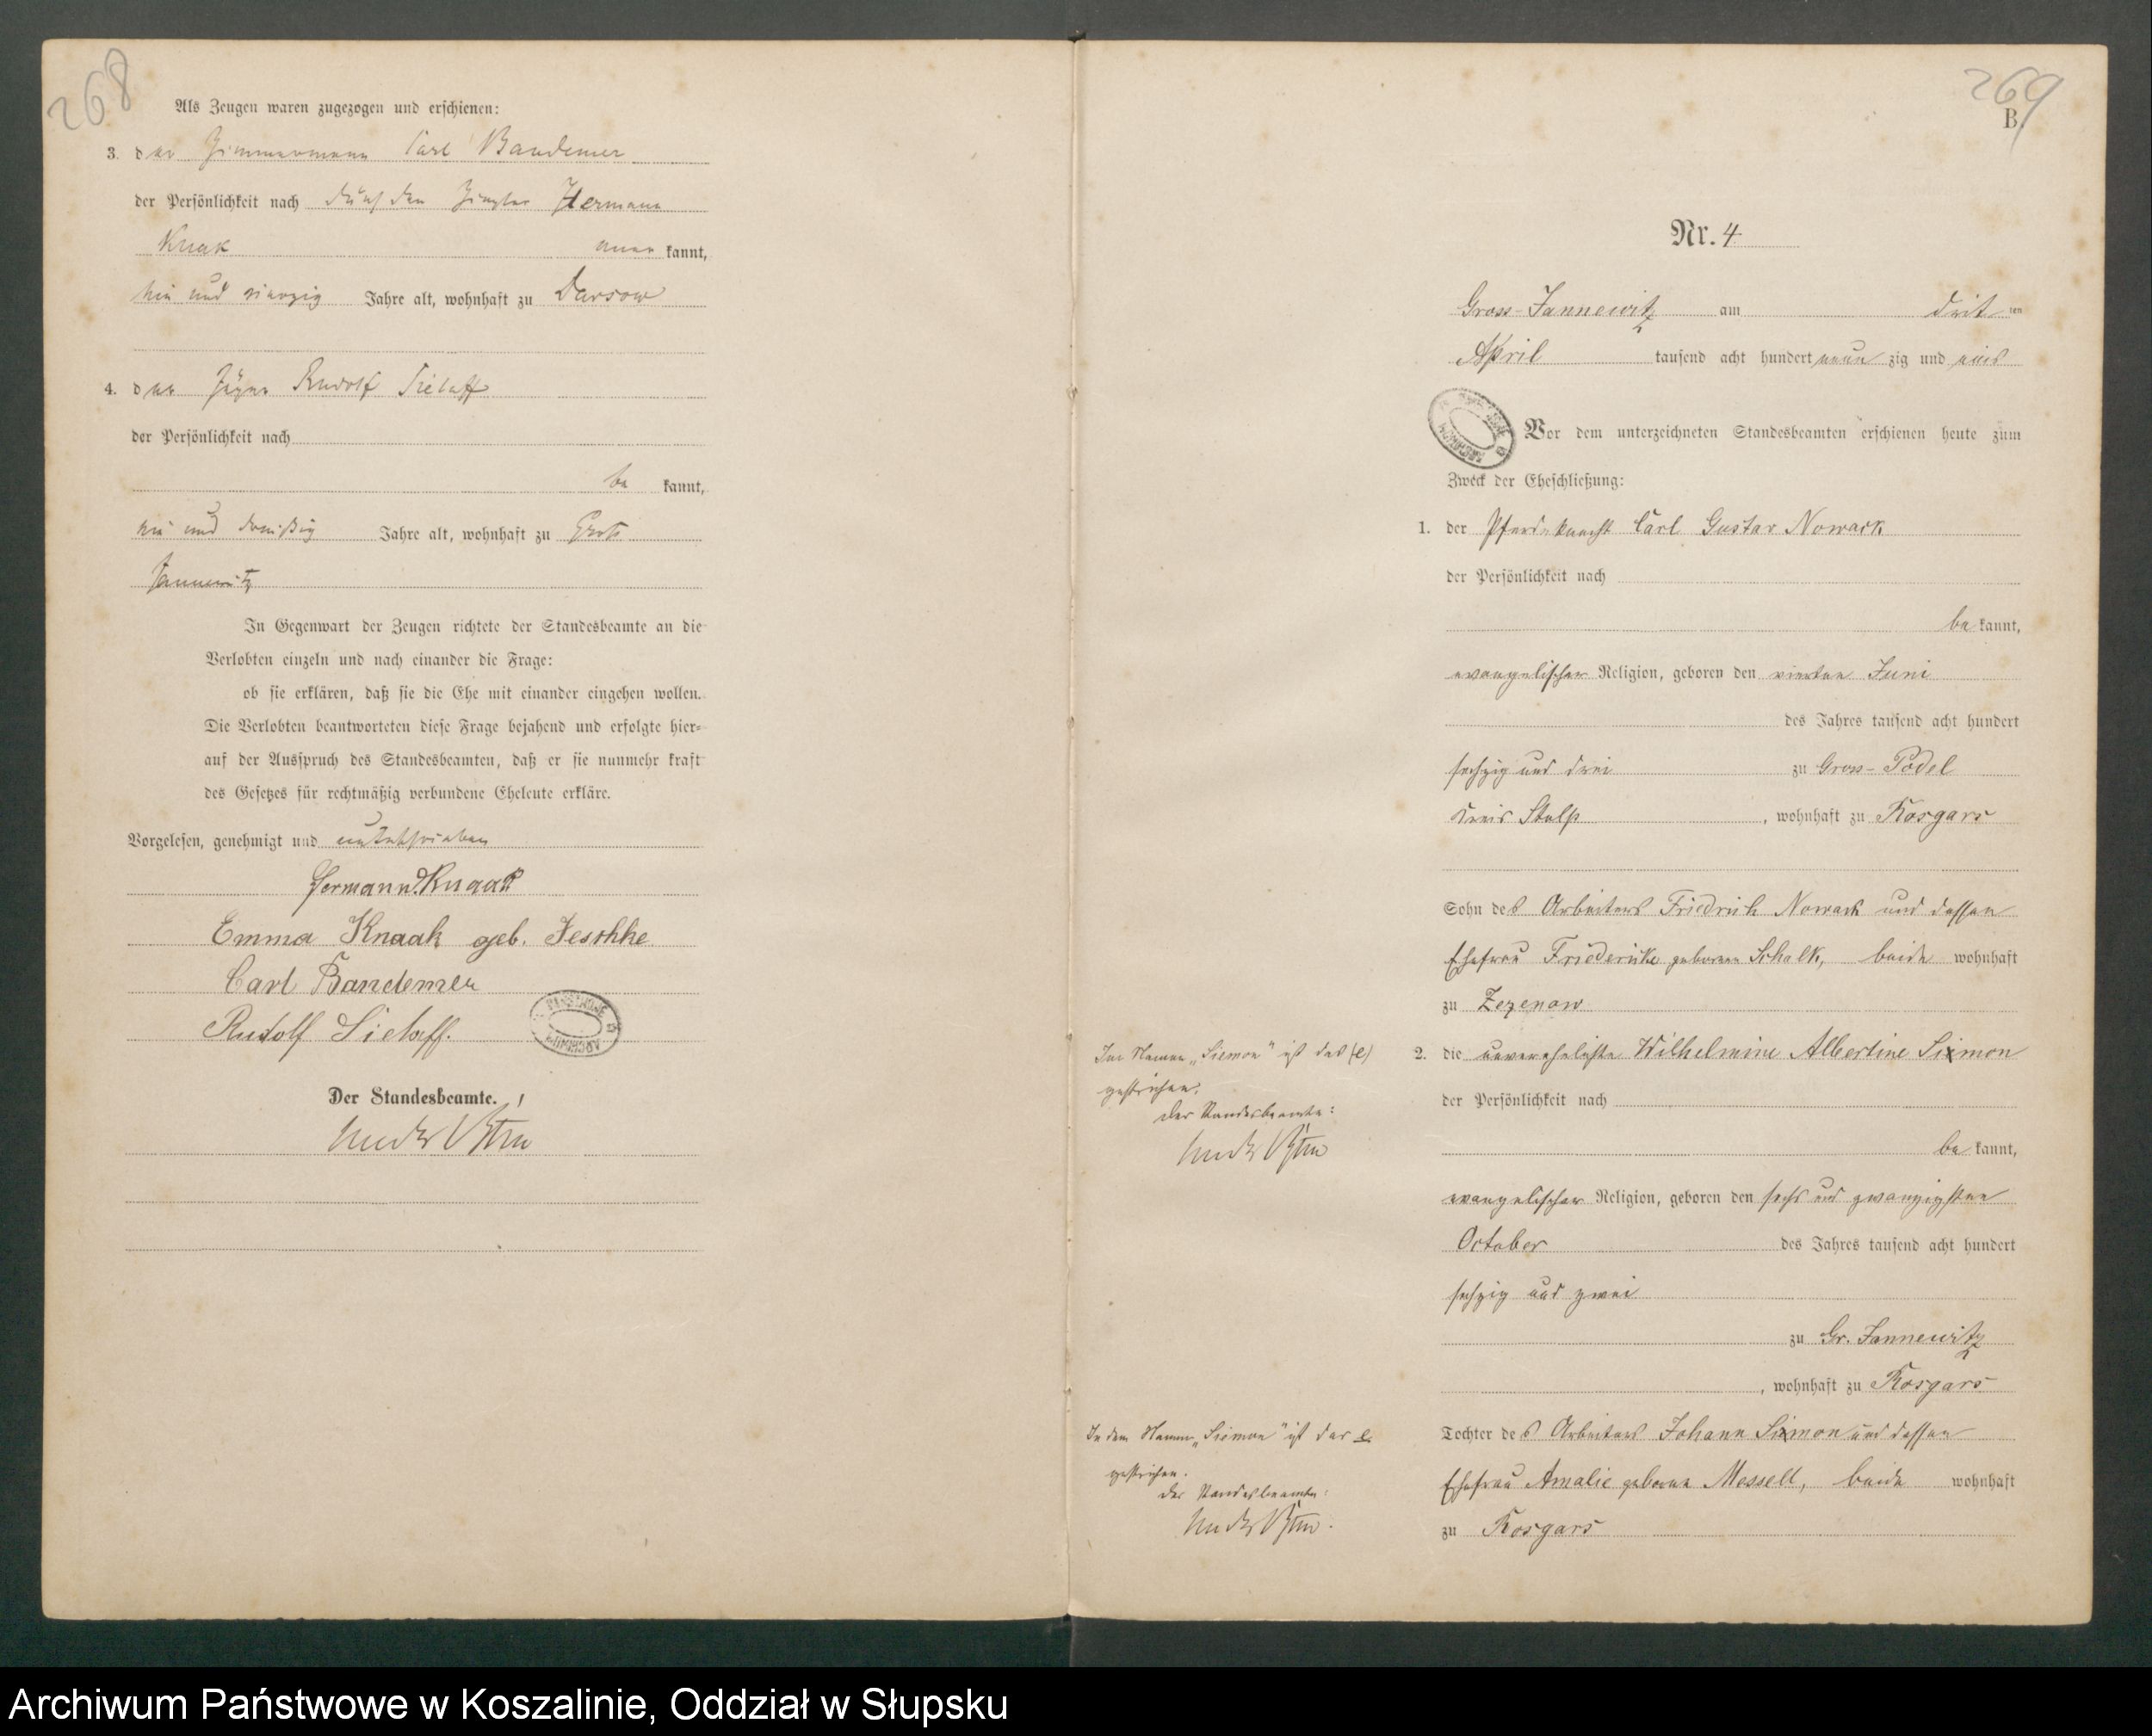 268
Als Zeugen waren zugezogen und erschienen:
3. der Zimmermann Carl Bandemer
der Persönlichkeit nach durch den Ziegler Hermann
Knaak aner kannt,
ein und vierzig Jahre alt, wohnhaft zu Darsow
4. der Jäger Rudolf Sielaff
der Persönlichkeit nach
be kannt,
und dreißig Jahre alt, wohnhaft zu Groß
Jannewitz
In Gegenwart der Zeugen richtete der Standesbeamte an die
Verlobten einzeln und nach einander die Frage:
ob sie erklären, daß sie die Ehe mit einander eingehen wollen.
Die Verlobten beantworteten diese Frage bejahend und erfolgte hier-
auf der Ausspruch des Standesbeamten, daß er sie nunmehr kraft
des Gesetzes für rechtmäßig verbundene Eheleute erkläre.
Vorgelesen, genehmigt und unterschrieben
Hermann Knaak
Emma Knaak geb. Jeschke
Carl Bandemer
Rudolf Sielaff.
Der Standesbeamte.
269
B.
Nr. 4
Gross-Jannewitz am drit ten
April tausend acht hundert neun zig und eins
Vor dem unterzeichneten Standesbeamten erschienen heute zum
Zweck der Eheschließung:
1. der Pferdeknecht Carl Gustav Nowack
der Persönlichkeit nach
be kannt,
evangelischer Religion, geboren den vierten Juni
des Jahres tausend acht hundert
sechzig und drei zu Gross-Podel
Kreis Stolp, wohnhaft zu Rosgars
Sohn des Arbeiters Friedrich Nowack und dessen
Ehefrau Friederike geborene Schalk, beide wohnhaft
zu Zezenow
2. die unverehelichte Wilhelmine Albertine Siemon
der Persönlichkeit nach
be kannt,
evangelischer Religion, geboren den sechs und zwanzigsten
October des Jahres tausend acht hundert
sechzig und zwei
zu Gr. Jannewitz
, wohnhaft zu Rosgars
Tochter des Arbeiters Johann Siemon und dessen
Ehefrau Amalie geborene Messell, beide wohnhaft
zu Rosgars
Im Namen „Siemon" ist das (e)
gestrichen.
Der Standesbeamte:
In dem Namen „Siemon" ist das e
gestrichen.
Der Standesbeamte:
Archiwum Państwowe w Koszalinie, Oddział w Słupsku